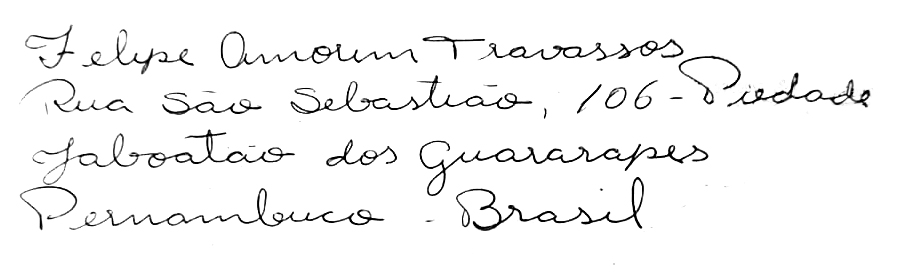 Felipe Amorim Travassos
Rua São Sebastião, 106 - Piedade
Jaboatão dos Guararapes
Pernambuco - Brasil